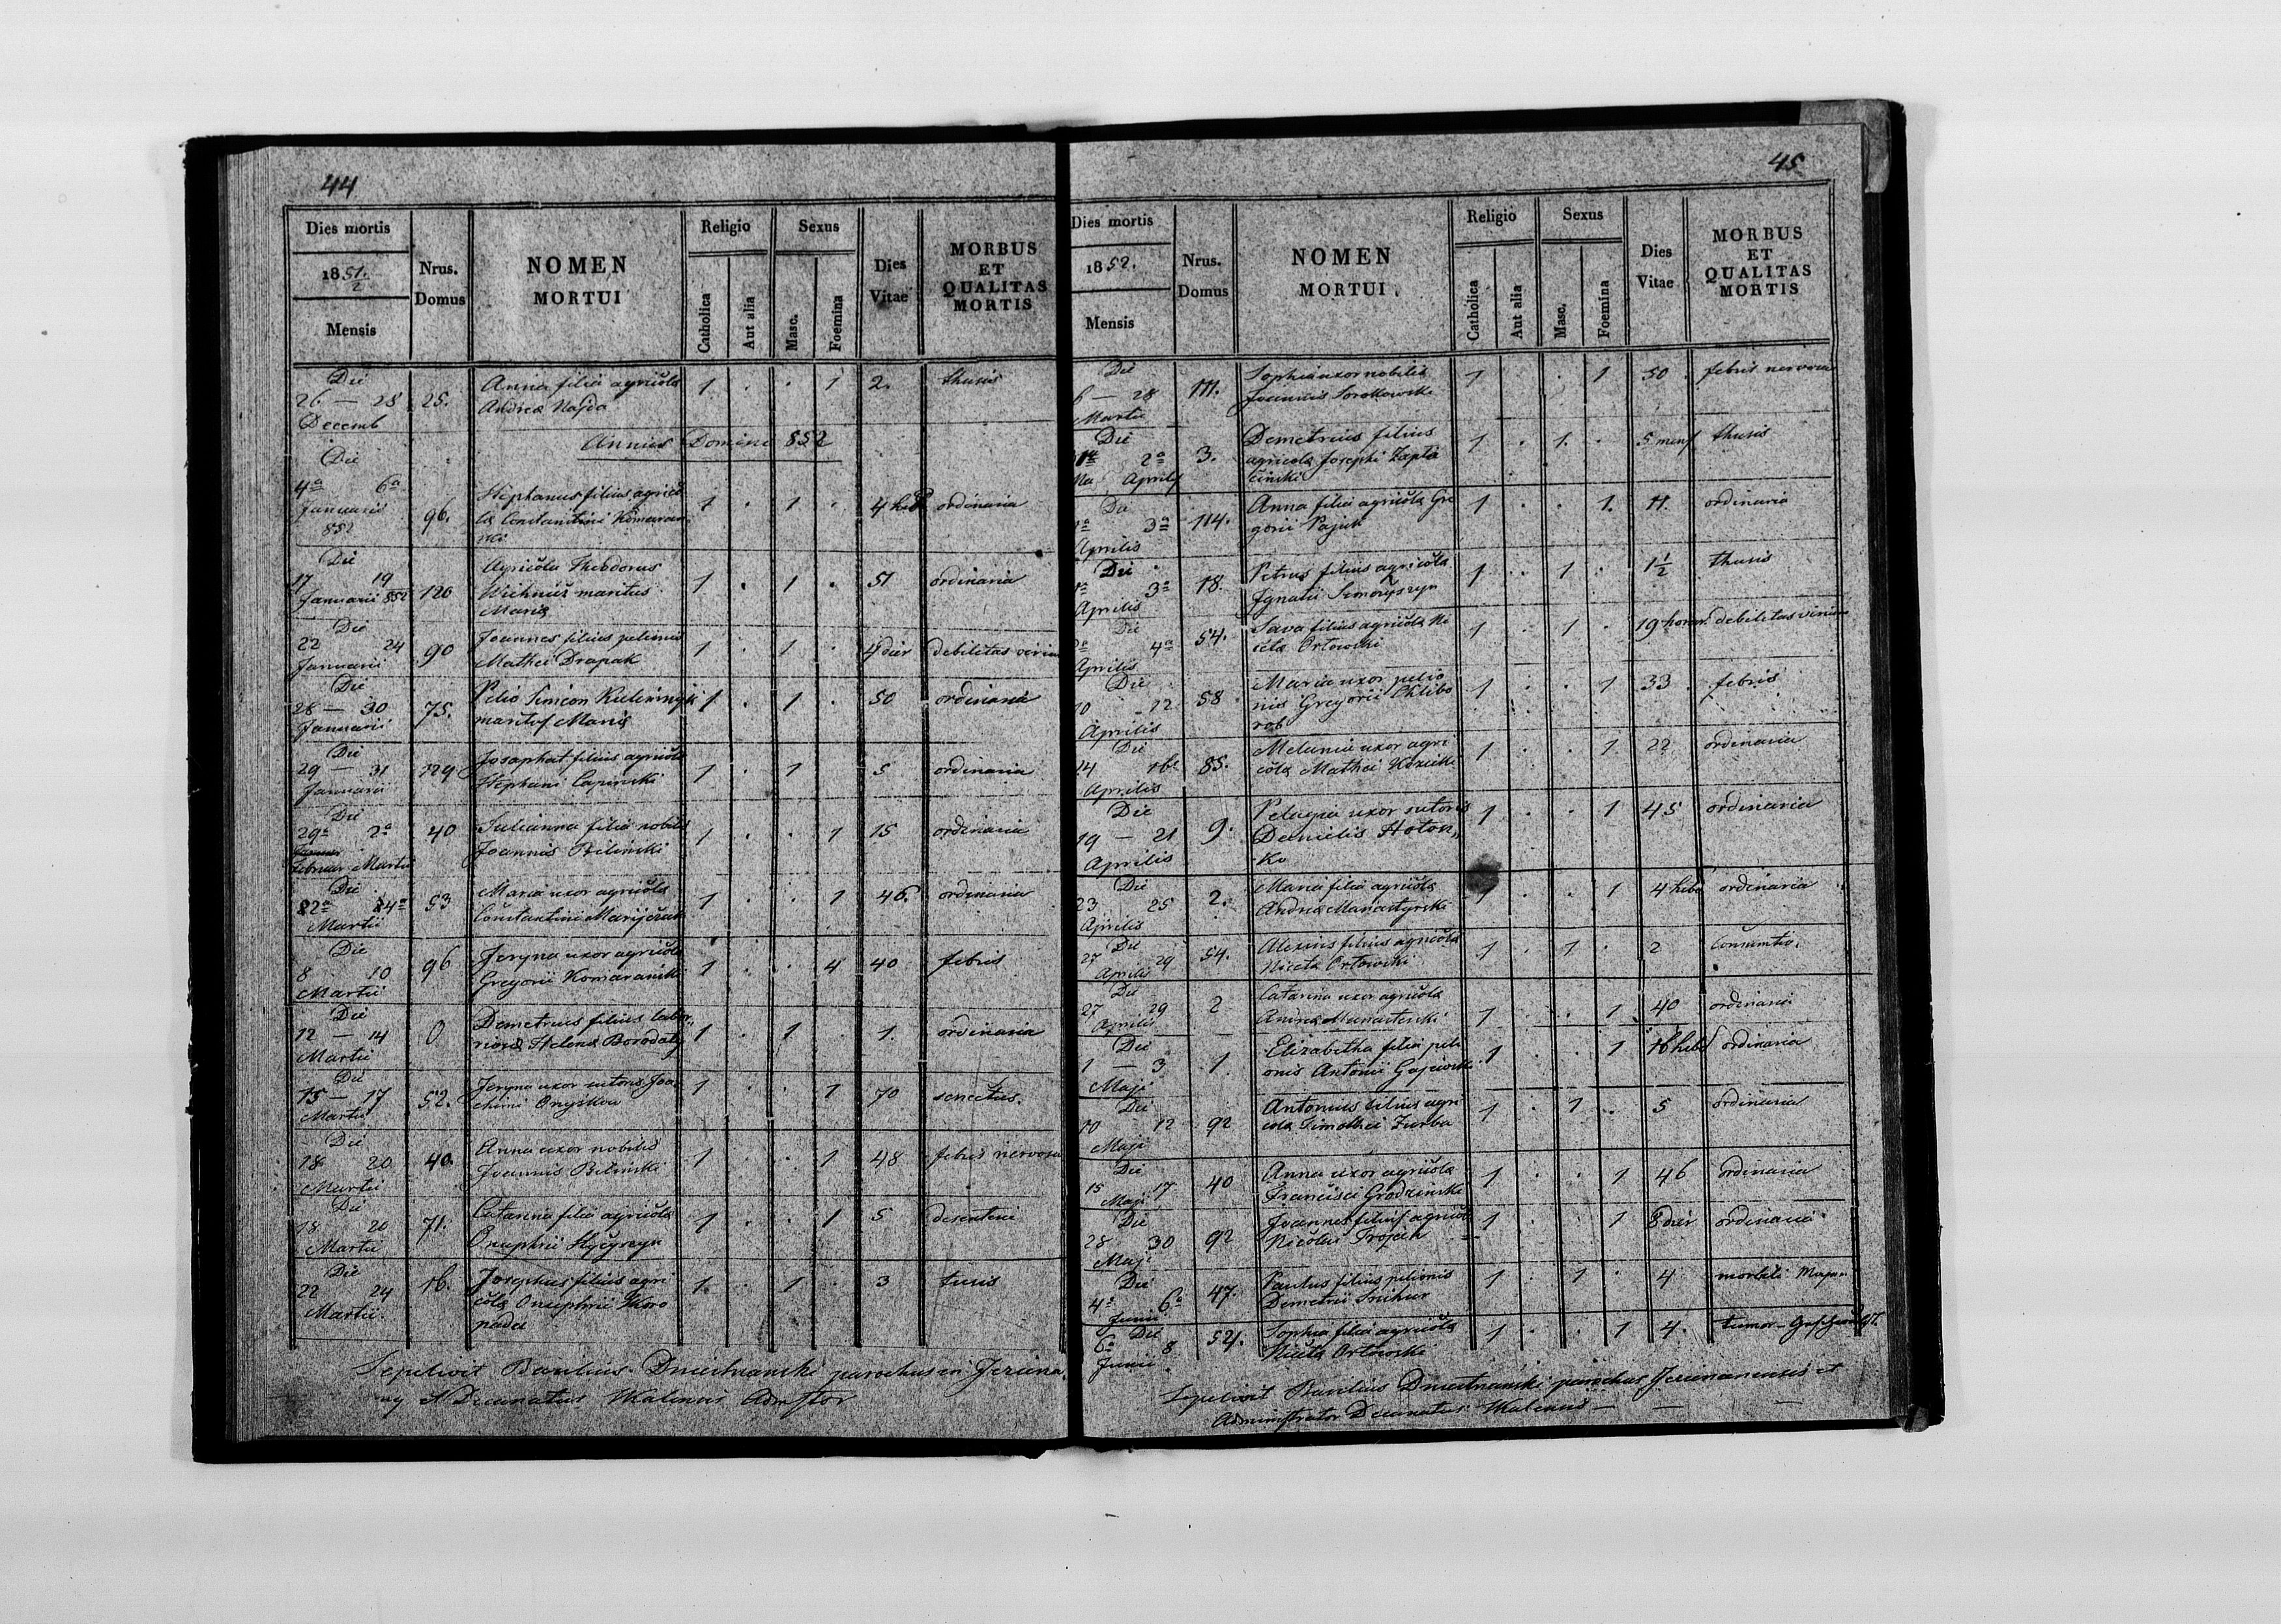 44
Dies mortis
1851.
2
Mensis
Nrus.
Domus
NOMEN
MORTUI
Religio
Catholica
Aut alia
Sexus
Masc.
Foemina
Dies
Vitae
MORBUS
ET
QUALITAS
MORTIS
Die
26 — 28
Decemb
25.
Anna filia agricolæ
Andreæ Najda
1 . . 1
2.
thusis
Annus Domini 852
Die
4a 6a
Januarii
852
96.
Stephanus filius agrico
læ Constantini Komaran
ski
1 . 1 .
4 hebd
ordinaria
Die
17 19
Januarii 852
120
Agricola Theodorus
maritus
Mariæ
1 . 1 .
51
ordinaria
Die
22 24
Januarii
90
Joannes filius pelionis
Mathei Drapak
1 . 1 .
4 dier
debilitas
Die
28 — 30
Januarii
75.
Pelio Simeon
maritus Mariæ
1 . 1 .
50
ordinaria
Die
29 — 31
Januarii
129
Josaphat filius agricolæ
Stephani
1 . 1
5
ordinaria
Die
29a 2a
Februar Martii
40
Julianna filia nobilis
Joannis Bilinski
1 . . 1
15
ordinaria
Die
Martii
53
Maria uxor agricolæ
Constantini
1 . . 1
46.
ordinaria
Die
8 10
Martii
96
Jeryna uxor agricolæ
Gregorii Komaranski
1 . . 1
40
febris
Die
12 — 14
Martii
0
Demetrius filius labo
Helenæ Borodaty
1 . 1 .
1.
ordinaria
Die
15 — 17
Martii
52.
Jeryna uxor sutoris Joa
chimi Onyskow
1 . . 1
70
senectus.
Die
18 20
Martii
40
Anna uxor nobilis
Joannis Bilinski
1 . . 1
48
febris nervosa
Die
18 20
Martii
71.
Catarina filia agricolæ
Onuphrii
1 . . 1
5
Die
22 24
Martii
16.
Josephus filius agri
colæ Onuphrii Skoro
pada
1. . 1 .
3
tusis
Sepelivit Basilius parochus in
et Decanatus
45
Dies mortis
1852.
Mensis
Nrus.
Domus
NOMEN
MORTUI
Religio
Catholica
Aut alia
Sexus
Masc.
Foemina
Dies
Vitae
MORBUS
ET
QUALITAS
MORTIS
Die
6 — 28
Martii
111.
Sophia uxor nobilis
Joannis
1 . . 1
50
febris nervosa
Die
2a
Aprilis
3.
Demetrius filius
agricolæ Josephi Zapla
1 . 1. .
5 mens
thusis
Die
3a
Aprilis
114.
Anna filia agricolæ Gre
gorii Pajuk
1 . . 1.
11.
ordinaria
Die
3a
Aprilis
18.
Petrus filius agricolæ
Ignatii
1 . 1 .
1 1/2
thusis
Die
4a
Aprilis
54.
Sava filius agricolæ Ni
cetæ Ortowski
1 . 1 .
19 horar.
debilitas
Die
10 12
Aprilis
58
Maria uxor pelio
nis Gregorii Chlibo
rob
1 . . 1
33
febris
Die
14 16
Aprilis
85.
Melania uxor agri
colæ Mathei
1 . . 1
22
ordinaria
Die
19 — 21
Aprilis
9.
Pelagia uxor sutoris
Danielis
1 . . 1
45
ordinaria
Die
23 25
Aprilis
2.
Maria filia agricolæ
Andreæ Manastyrski
1 . . 1
4 hebd
ordinaria
Die
27 29
Aprilis
54.
Alexius filius agricolæ
Nicetæ Ortowski
1 . 1 .
2
Die
27 29
Aprilis
2
Catarina uxor agricolæ
Andreæ Manasterski
1 . . 1
40
ordinaria
Die
1 — 3
Maji
1.
Elizabetha filia peli
onis Antonii
1 . . 1
16 hebd
ordinaria
Die
10 12
Maji
92
Antonius filius agri
colæ Timothei Zurba
1 . 1 .
5
ordinaria
Die
15 17
Maji
40
Anna uxor agricolæ
Francisci Grodzinski
1 . . 1
46
ordinaria
Die
28 30
Maji
92
Joannes filius agricolæ
Nicolai
1 . . 1
8 dier
ordinaria
Die
4a 6a
Junii
47.
Paulus filius pelionis
Demetrii
1 . 1 .
4
morbili
Die
6a 8
Junii
54.
Sophia filia agricolæ
Nicetæ Ortowski
1 . . 1
4.
tumor
Sepelivit Basilius parochus et
Administrator Decanatus